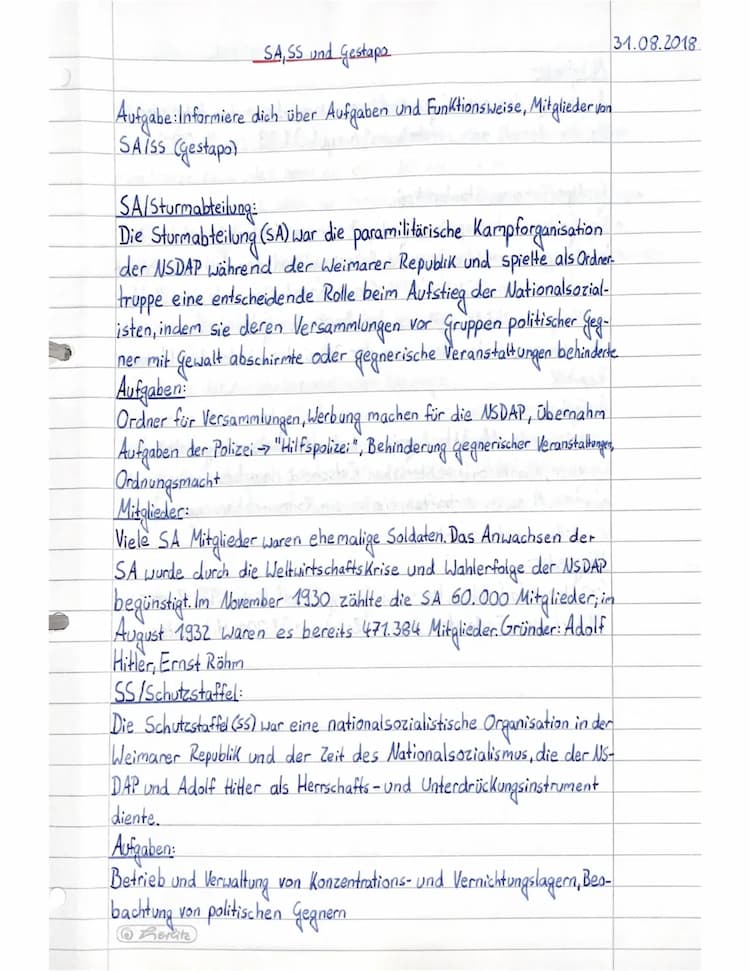 SA, SS und Gestapo
31.08.2018
Aufgabe: Informiere dich über Aufgaben und Funktionsweise, Mitglieder von
SA/SS (Gestapo)
SA/Sturmabteilung:
Die Sturmabteilung (SA) war die paramilitärische Kampforganisation
der NSDAP während der Weimarer Republik und spielte als Ordner-
truppe eine entscheidende Rolle beim Aufstieg der Nationalsozial-
isten, indem sie deren Versammlungen vor Gruppen politischer Geg-
ner mit Gewalt abschirmte oder gegnerische Veranstaltungen behinderte
Aufgaben:
Ordner für Versammlungen, Werbung machen für die NSDAP, übernahm
Aufgaben der Polizei → "Hilfspolizei", Behinderung gegnerischer Veranstaltungen,
Ordnungsmacht
Mitglieder:
Viele SA Mitglieder waren ehemalige Soldaten. Das Anwachsen der
SA wurde durch die Weltwirtschaftskrise und Wahlerfolge der NSDAP
begünstigt. Im November 1930 zählte die SA 60.000 Mitglieder; im
August 1932 waren es bereits 471.384 Mitglieder. Gründer: Adolf
Hitler, Ernst Röhm
SS/Schutzstaffel:
Die Schutzstaffel (SS) war eine nationalsozialistische Organisation in der
Weimarer Republik und der Zeit des Nationalsozialismus, die der NS-
DAP und Adolf Hitler als Herrschafts- und Unterdrückungsinstrument
diente.
Aufgaben:
Betrieb und Verwaltung von Konzentrations- und Vernichtungslagern, Beo-
bachtung von politischen Gegnern